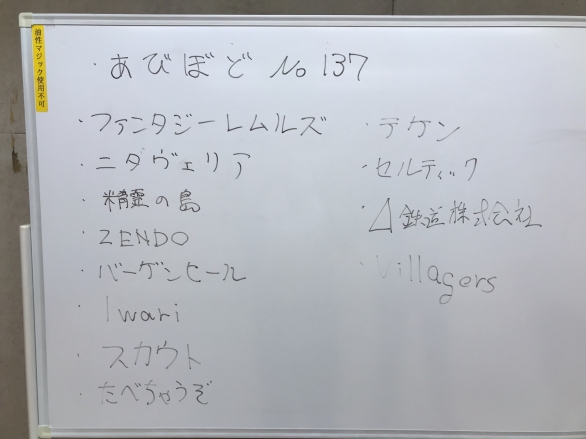 油性マジック使用不可
・あびぼど No 137
・ファンタジーレルムズ
・ニダヴェリア
・精霊の島
・ZENDO
・バーゲンヒール
・Iwari
・スカウト
・たべちゃうぞ
・テケン
・セルティック
・鉄道株式会社
・Villagers